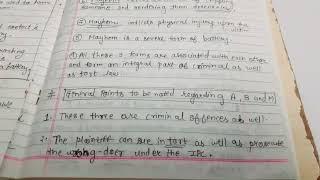 someone is rendering them
④ Mayhem inflicts physical injury upon the victim.
⑤ Mayhem is a severe form of battery
⑥ All these 3 forms are associated with each other
and form an integral part of criminal as well
as tort law
# General Points to be noted regarding A, B and M
1. These three are criminal offences as well.
2. The plaintiff can sue in tort as well as prosecute
the wrong-doer under the IPC.